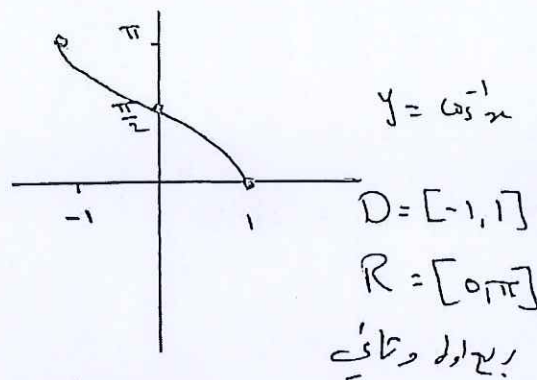 π
π/2
-1
1
y = cos⁻¹x
D = [-1, 1]
R = [0, π]
ربع اول وثاني